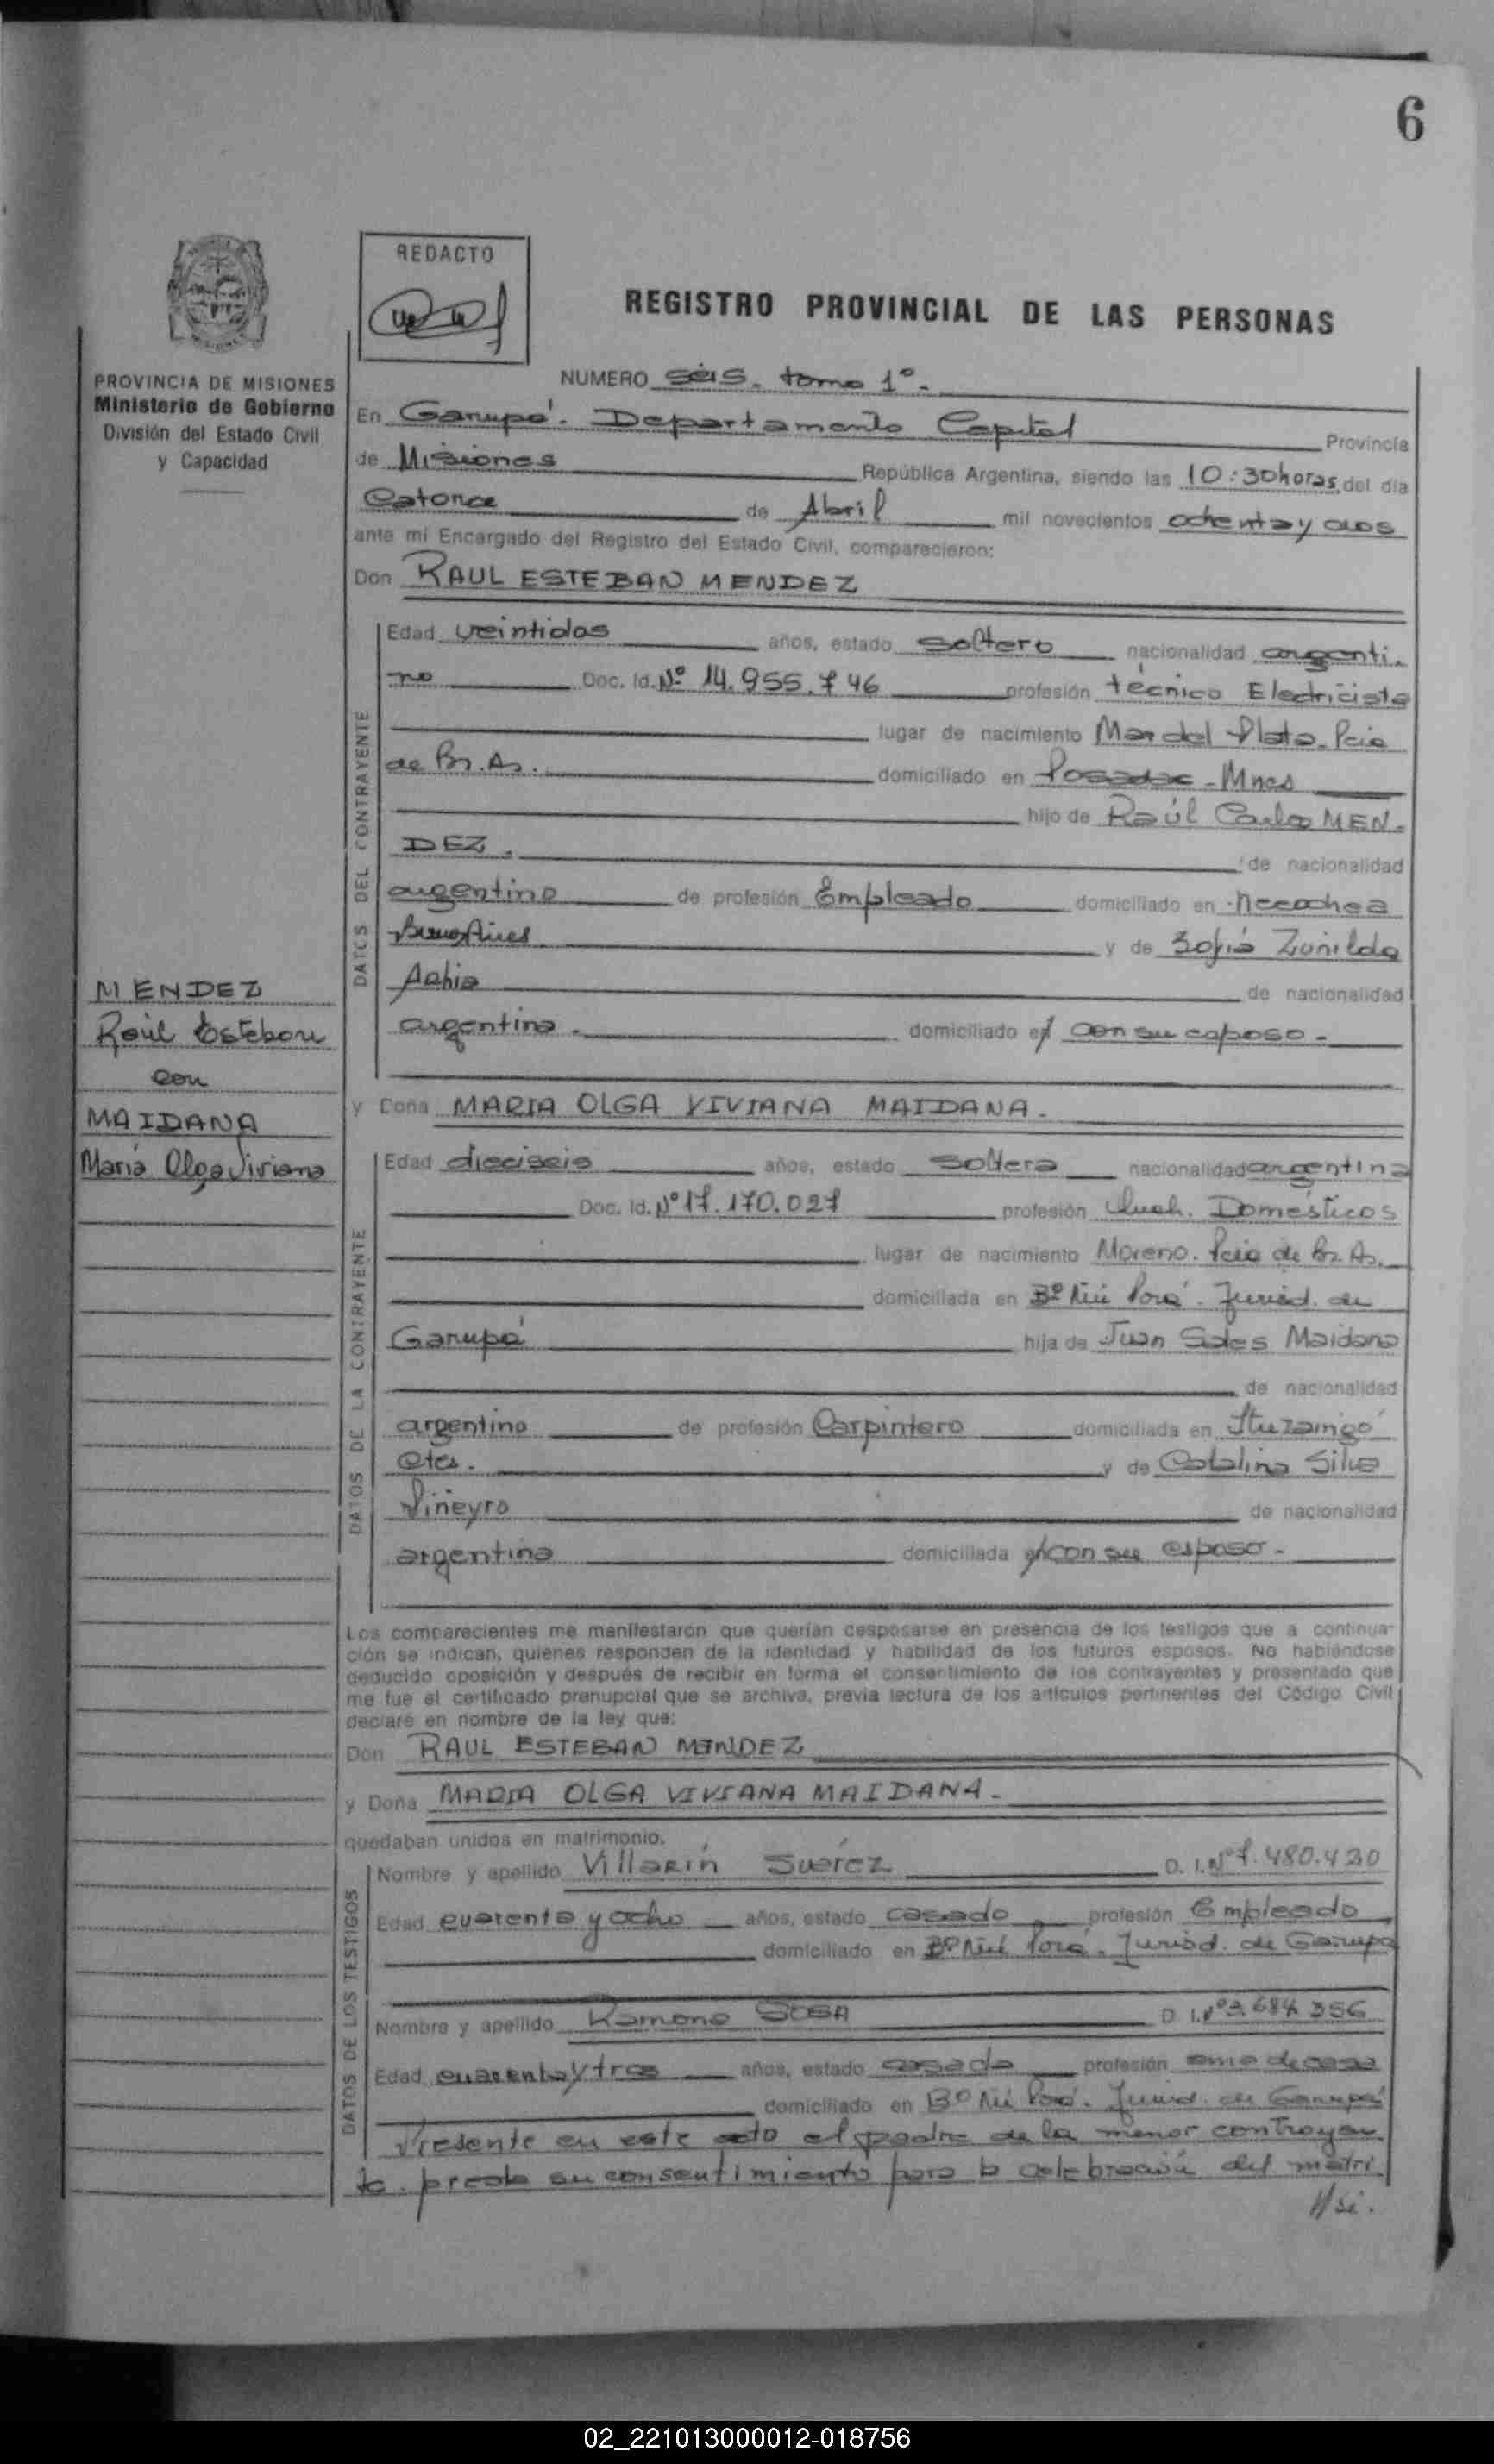 6
REDACTO
REGISTRO PROVINCIAL DE LAS PERSONAS
PROVINCIA DE MISIONES
Ministerio de Gobierno
División del Estado Civil
y Capacidad
NUMERO seis. tomo 1º.
En Garupá. Departamento Capital Provincia
de Misiones República Argentina, siendo las 10:30horas. del día
Catorce de Abril mil novecientos ochenta y dos
ante mi Encargado del Registro del Estado Civil, comparecieron:
Don RAUL ESTEBAN MENDEZ
DATOS DEL CONTRAYENTE
Edad veintidos años, estado soltero nacionalidad argenti.
no Doc. Id. Nº 14.955.746 profesión técnico Electricista
lugar de nacimiento Mar del Plata. Pcia
de Bs. As. domiciliado en Posadas - Mnes
hijo de Raúl Carlos MEN.
DEZ. de nacionalidad
argentino de profesión Empleado domiciliado en Necochea
Buenos Aires y de Sofia Zunilda
de nacionalidad
argentina. domiciliado en con su esposo.
MENDEZ
Raúl Esteban
con
MAIDANA
Maria Olga Viviana
y Doña MARIA OLGA VIVIANA MAIDANA.
DATOS DE LA CONTRAYENTE
Edad dieciseis años, estado soltera nacionalidad argentina
Doc. Id. Nº 17.170.027 profesión Queh. Domésticos
lugar de nacimiento Moreno. Pcia de Bs. As.
domiciliada en Bº Ñu Porá. Jurisd. de
Garupá hija de Juan Sales Maidana
de nacionalidad
argentino de profesión Carpintero domiciliada en Ituzaingó
Ctes. y de Catalina Silva
Piñeyro de nacionalidad
argentina domiciliada con su esposo.
Los comparecientes me manifestaron que querían desposarse en presencia de los testigos que a continua-
ción se indican, quienes responden de la identidad y habilidad de los futuros esposos. No habiéndose
deducido oposición y después de recibir en forma el consentimiento de los contrayentes y presentado que
me fue el certificado prenupcial que se archiva, previa lectura de los artículos pertinentes del Código Civil
declaré en nombre de la ley que:
Don RAUL ESTEBAN MENDEZ
y Doña MARIA OLGA VIVIANA MAIDANA.
quedaban unidos en matrimonio.
DATOS DE LOS TESTIGOS
Nombre y apellido Villarín Suárez D. I. Nº 7.480.420
Edad cuarenta y ocho años, estado casado profesión Empleado
domiciliado en Bº Ñu Porá. Jurisd. de Garupá
Nombre y apellido Ramona SOSA D. I. Nº 3.684.356
Edad cuarenta y tres años, estado casada profesión ama de casa
domiciliado en Bº Ñu Porá. Jurisd. de Garupá
Presente en este acto el padre de la menor contrayen
te. presta su consentimiento para la celebración del matri
02_221013000012-018756